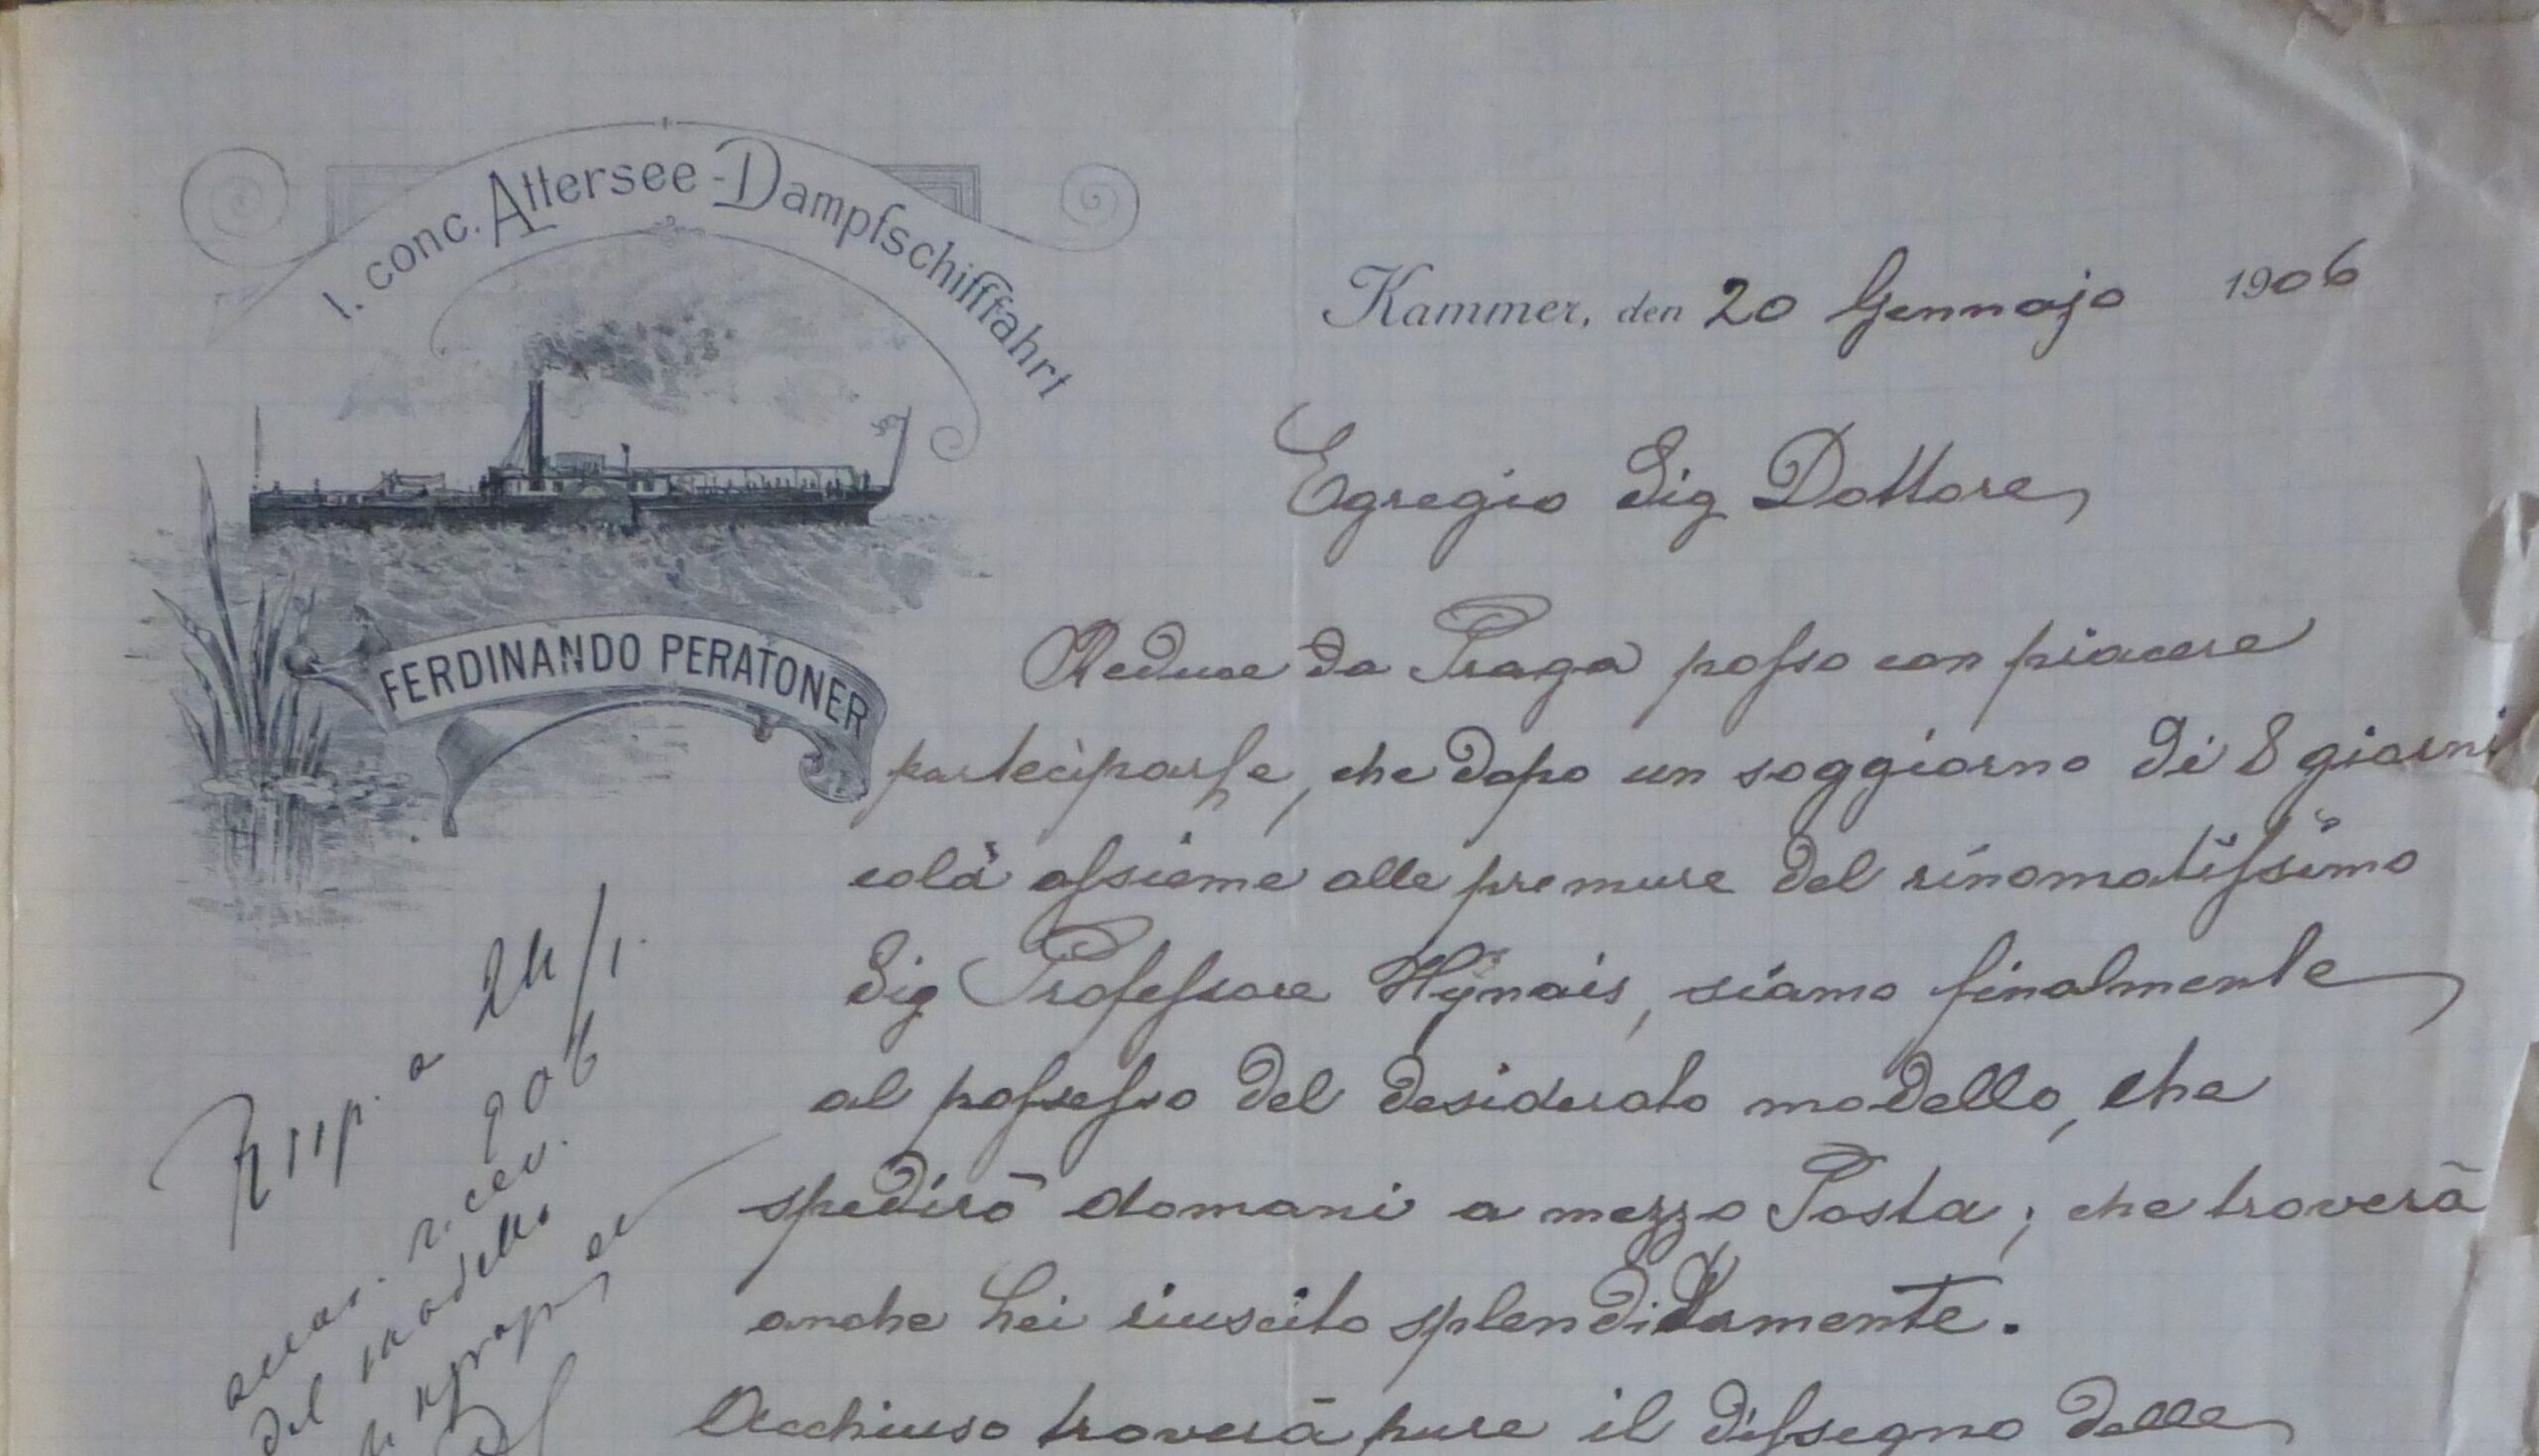 I. conc. Attersee-Dampfschifffahrt
FERDINANDO PERATONER
Kammer, den 20 Gennajo 1906
Egregio Sig Dottore,
Reduce da Praga posso con piacere
parteciparle, che dopo un soggiorno di 8 giorni
colà assieme alle premure del rinomatissimo
Sig Professore Hÿnais, siamo finalmente
al possesso del desiderato modello, che
spedirò domani a mezzo Posta; che troverà
anche Lei riuscito splendidamente.
Acchiuso troverà pure il dissegno delle
Risp. a 24/1.
906
ricev.
del modello